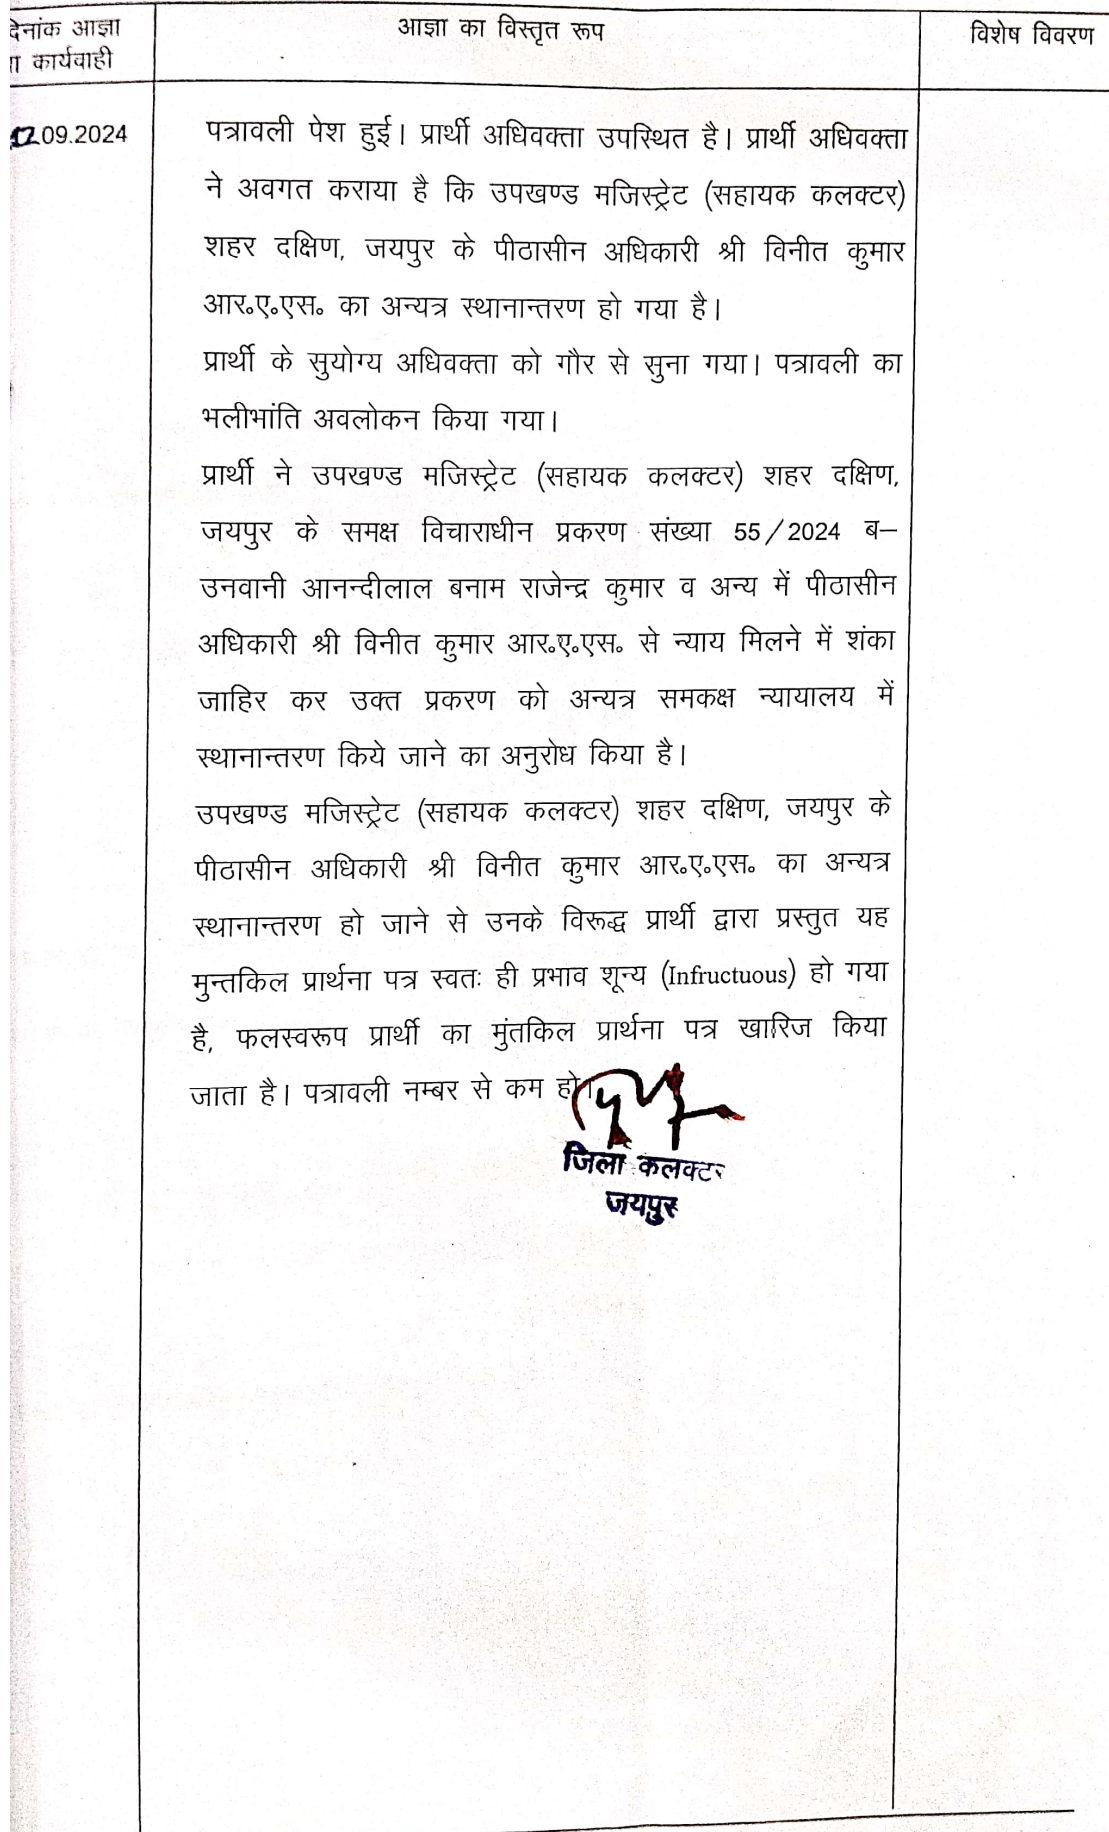 दिनांक आज्ञा
कार्यवाही
आज्ञा का विस्तृत रूप
विशेष विवरण
12.09.2024
पत्रावली पेश हुई। प्रार्थी अधिवक्ता उपस्थित है। प्रार्थी अधिवक्ता
ने अवगत कराया है कि उपखण्ड मजिस्ट्रेट (सहायक कलक्टर)
शहर दक्षिण, जयपुर के पीठासीन अधिकारी श्री विनीत कुमार
आर॰ए॰एस॰ का अन्यत्र स्थानान्तरण हो गया है।
प्रार्थी के सुयोग्य अधिवक्ता को गौर से सुना गया। पत्रावली का
भलीभांति अवलोकन किया गया।
प्रार्थी ने उपखण्ड मजिस्ट्रेट (सहायक कलक्टर) शहर दक्षिण,
जयपुर के समक्ष विचाराधीन प्रकरण संख्या 55/2024 ब–
उनवानी आनन्दीलाल बनाम राजेन्द्र कुमार व अन्य में पीठासीन
अधिकारी श्री विनीत कुमार आर॰ए॰एस॰ से न्याय मिलने में शंका
जाहिर कर उक्त प्रकरण को अन्यत्र समकक्ष न्यायालय में
स्थानान्तरण किये जाने का अनुरोध किया है।
उपखण्ड मजिस्ट्रेट (सहायक कलक्टर) शहर दक्षिण, जयपुर के
पीठासीन अधिकारी श्री विनीत कुमार आर॰ए॰एस॰ का अन्यत्र
स्थानान्तरण हो जाने से उनके विरूद्ध प्रार्थी द्वारा प्रस्तुत यह
मुन्तकिल प्रार्थना पत्र स्वतः ही प्रभाव शून्य (Infructuous) हो गया
है, फलस्वरूप प्रार्थी का मुंतकिल प्रार्थना पत्र खारिज किया
जाता है। पत्रावली नम्बर से कम हो।
जिला कलक्टर
जयपुर